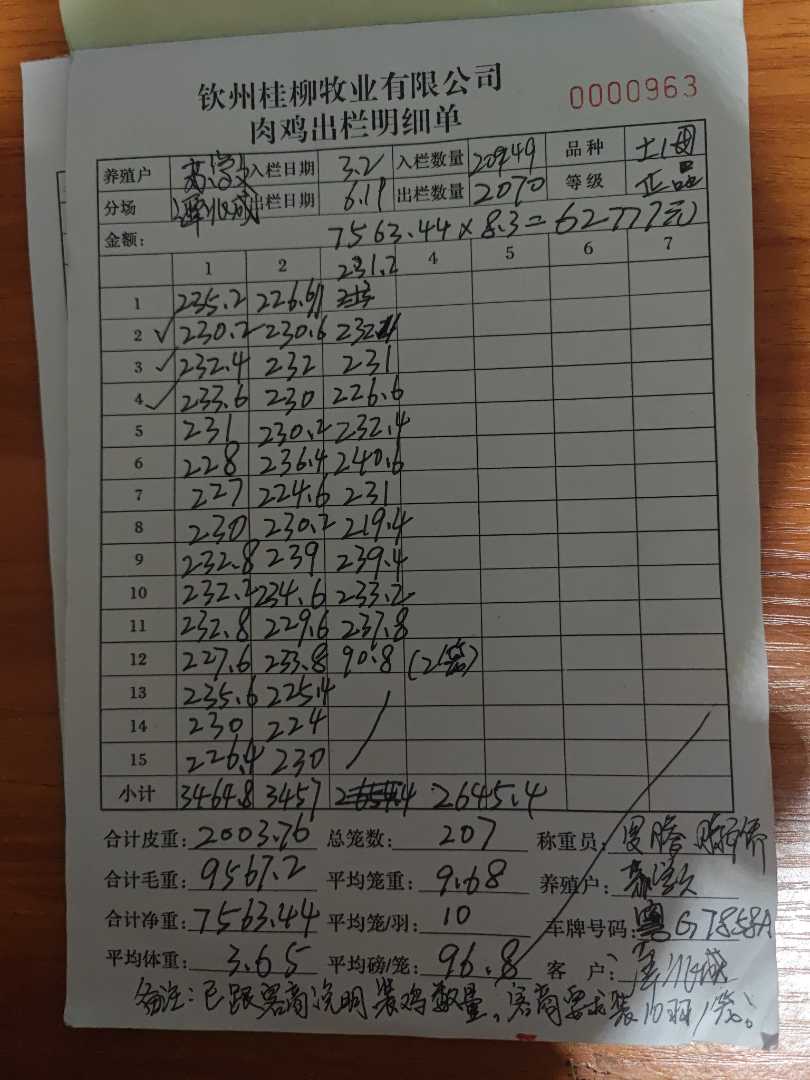 钦州桂柳牧业有限公司 0000963
肉鸡出栏明细单
养殖户 入栏日期 3.2 入栏数量 20949 品种
分场 出栏日期 6.19 出栏数量 2070 等级 正品
金额: 7563.44×8.3=62777元
1 2 231.2 4 5 6 7
1 235.2 226.6
2 ✓ 230.2 230.6
3 ✓ 232.4 232 231
4 ✓ 233.6 230 226.6
5 231 230.2 232.4
6 228 236.4 240.6
7 227 224.6 231
8 230 230.2 219.4
9 232.8 239 239.4
10 232.2 234.6 233.2
11 232.8 229.6 237.8
12 227.6 233.8 90.8 (2笼)
13 235.6 225.4
14 230 224
15 226.4 230
小计 3464.8 3457 2645.4
合计皮重: 2003.76 总笼数: 207 称重员:
合计毛重: 9567.2 平均笼重: 9.68 养殖户:
合计净重: 7563.44 平均笼/羽: 10 车牌号码: 粤G7858A
平均体重: 3.65 平均磅/笼: 96.8 客户:
备注:已跟客商说明装鸡数量,客商要求装10羽/笼。